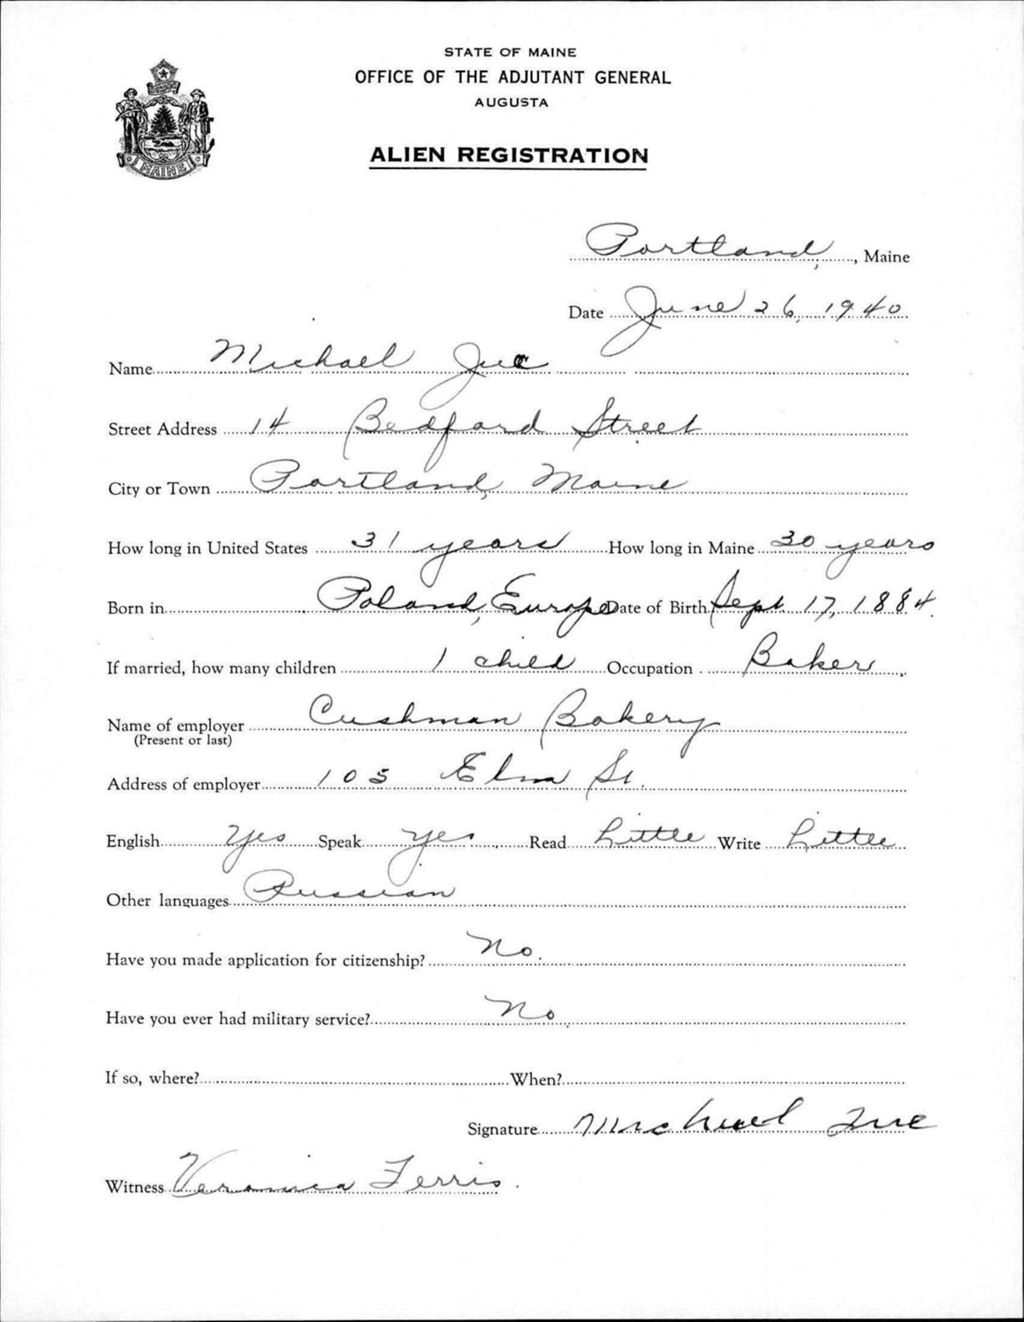 STATE OF MAINE
OFFICE OF THE ADJUTANT GENERAL
AUGUSTA
ALIEN REGISTRATION
MAINE
Portland, Maine
Date June 26, 1940
Name Michael Juc
Street Address 14 Bedford Street
City or Town Portland, Maine
How long in United States 31 years How long in Maine 30 years
Born in Poland, Europe Date of Birth Sept 17, 1884.
If married, how many children 1 child Occupation Baker
Name of employer Cushman Bakery
(Present or last)
Address of employer 105 Elm St.
English Yes Speak yes Read Little Write Little
Other languages Russian
Have you made application for citizenship? No.
Have you ever had military service? No
If so, where? When?
Signature Michael
Witness Veronica Ferris.